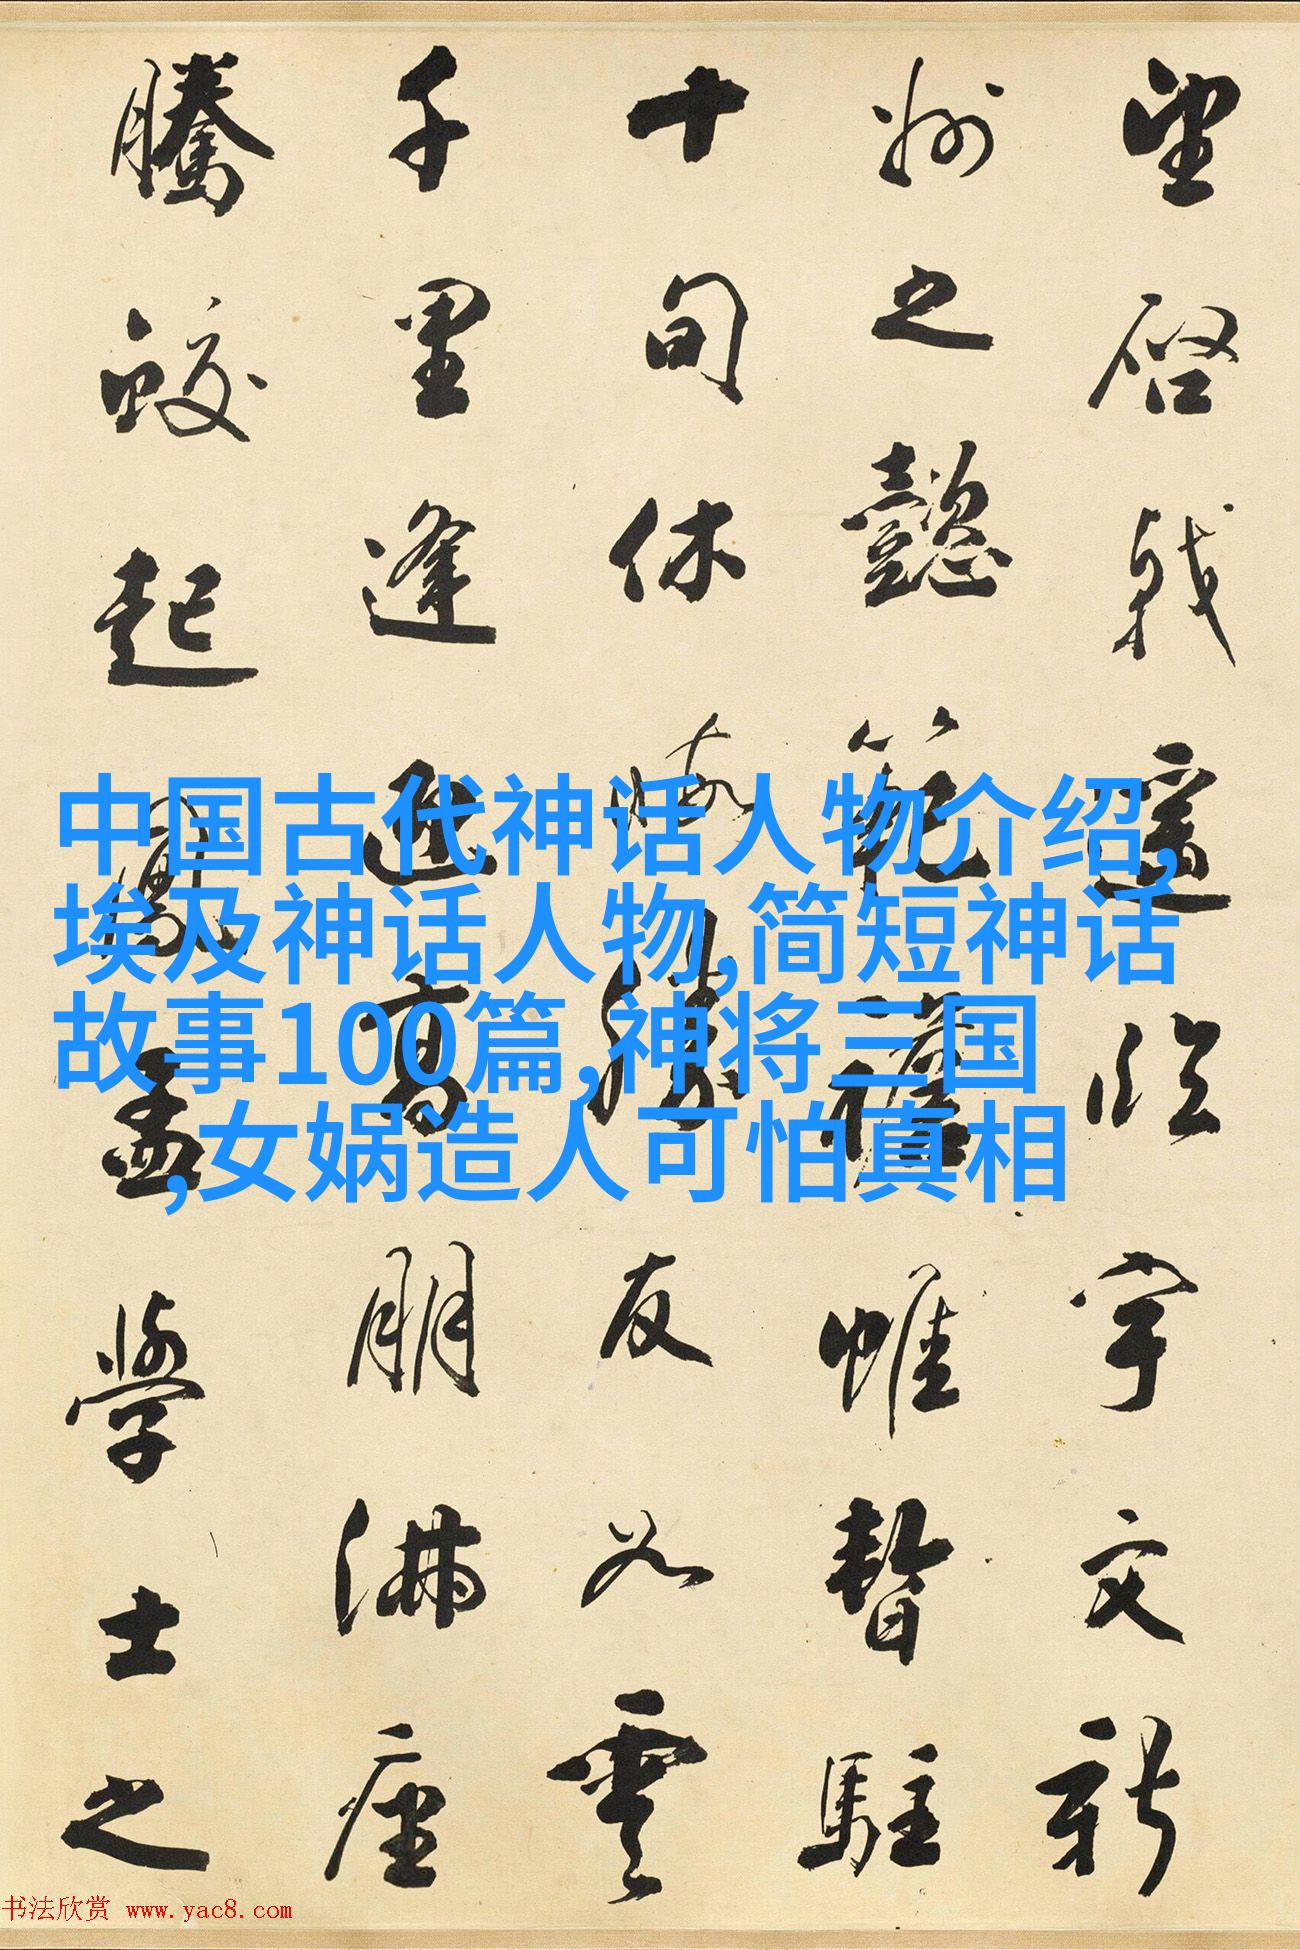 望啓戟遥临宇文新
州之懿範襜帷暫駐
十旬休暇勝友如雲
千里逢迎高朋满座
騰蛟起鳳孟學士之
中国古代神话人物介绍,
埃及神话人物,简短神话
故事100篇,神将三国
,女娲造人可怕真相
书法欣赏 www.yac8.com